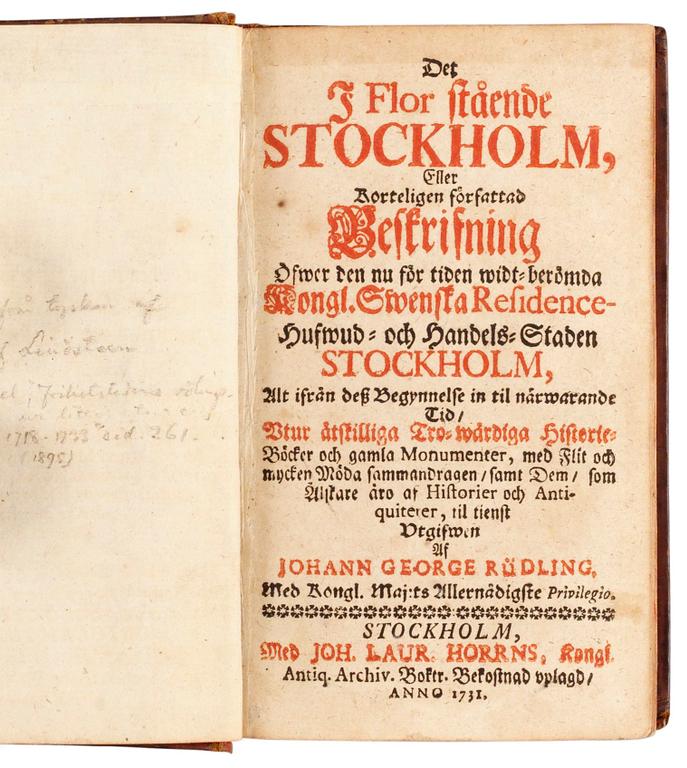 från tyskan af
Lindsteen
1718-1733 sid. 261.
(1895)
Det
I Flor stående
STOCKHOLM,
Eller
Korteligen författad
Beskrifning
Öfwer den nu för tiden widt-berömda
Kongl. Swenska Residence-
Hufwud- och Handels-Staden
STOCKHOLM,
Alt ifrån deß Begynnelse in til närwarande
Tid/
Utur åtskilliga Tro-wärdiga Historie-
Böcker och gamla Monumenter, med Flit och
mycken Möda sammandragen/ samt Dem/ som
Älskare äro af Historier och Anti-
quiteter, til tienst
Utgifwen
Af
JOHANN GEORGE RÜDLING,
Med Kongl. Maj:ts Allernådigste Privilegio.
STOCKHOLM,
Med JOH. LAUR. HORRNS, Kongl.
Antiq. Archiv. Boktr. Bekostnad uplagd/
ANNO 1731.